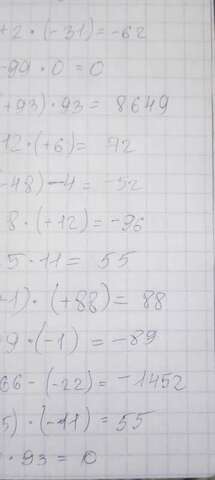 +2·(-31)=-62
-99·0=0
+93)·93=8649
12·(+6)=72
-48)-4=-52
8·(-12)=-96
5·11=55
-1)·(+88)=88
9·(-1)=-89
66-(-22)=-1452
5)·(-11)=55
·93=0